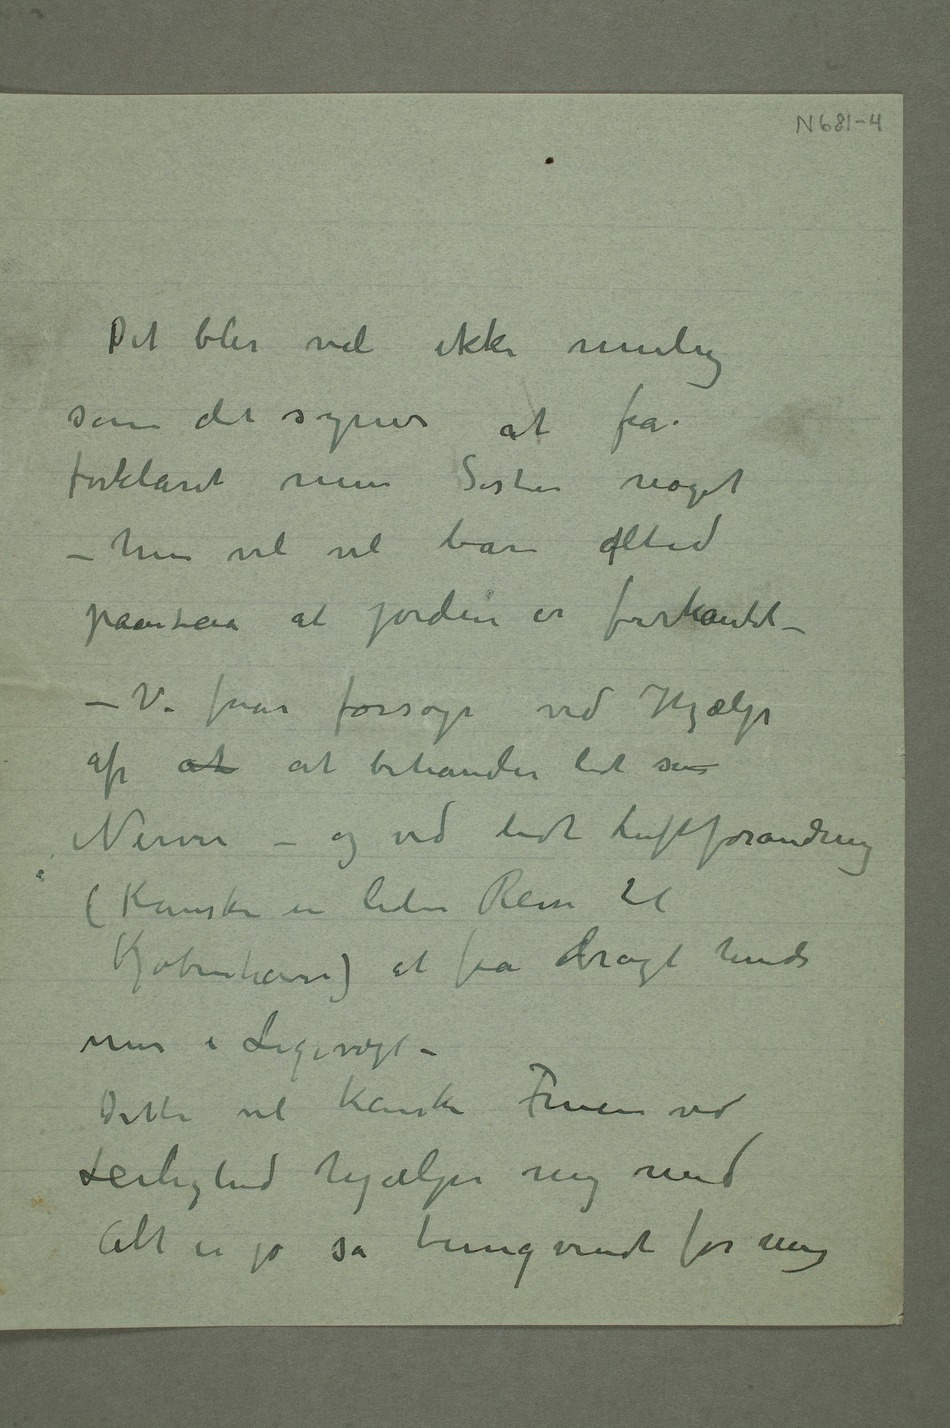 N681-4
Det blir vel ikke mulig
som det synes at få
forklaret min Søster noget
– hun vil vil bare altid
paastaa at jorden er firkantet –
– Vi faar forsøge ved Hjælp
af at at behandle lidt sine
Nerver – og ved lidt Luftforandring
(Kanske en liden Reise til
Kjøbenhavn) at få bragt hendes
mer i Ligevægt –
Dette vil kanske Fruen ved
Leilighed hjælpe mig med
Alt er jo så tungvindt for mig